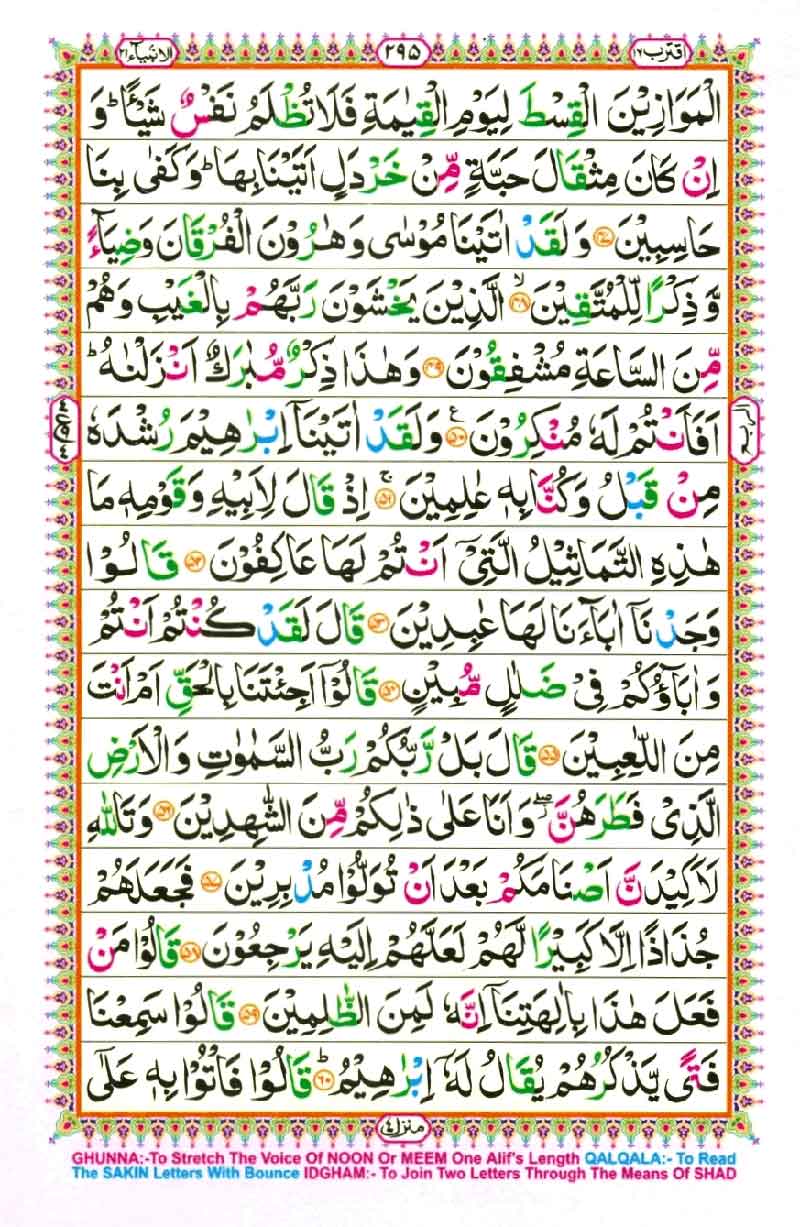 الانبیآء ۲۱
۲۹۵
اقترب ۱۷
الْمَوَازِیْنَ الْقِسْطَ لِیَوْمِ الْقِیٰمَةِ فَلَا تُظْلَمُ نَفْسٌ شَیْـًٔا ؕ وَ
اِنْ كَانَ مِثْقَالَ حَبَّةٍ مِّنْ خَرْدَلٍ اَتَیْنَا بِهَا ؕ وَ كَفٰی بِنَا
حَاسِبِیْنَ ۴۷ وَ لَقَدْ اٰتَیْنَا مُوْسٰی وَ هٰرُوْنَ الْفُرْقَانَ وَ ضِیَآءً
وَّ ذِكْرًا لِّلْمُتَّقِیْنَ ۙ ۴۸ الَّذِیْنَ یَخْشَوْنَ رَبَّهُمْ بِالْغَیْبِ وَ هُمْ
مِّنَ السَّاعَةِ مُشْفِقُوْنَ ۴۹ وَ هٰذَا ذِكْرٌ مُّبٰرَكٌ اَنْزَلْنٰهُ ؕ
اَفَاَنْتُمْ لَهٗ مُنْكِرُوْنَ ۵۰ ع وَ لَقَدْ اٰتَیْنَاۤ اِبْرٰهِیْمَ رُشْدَهٗ
مِنْ قَبْلُ وَ كُنَّا بِهٖ عٰلِمِیْنَ ۚ ۵۱ اِذْ قَالَ لِاَبِیْهِ وَ قَوْمِهٖ مَا
هٰذِهِ التَّمَاثِیْلُ الَّتِیْۤ اَنْتُمْ لَهَا عَاكِفُوْنَ ۵۲ قَالُوْا
وَجَدْنَاۤ اٰبَآءَنَا لَهَا عٰبِدِیْنَ ۵۳ قَالَ لَقَدْ كُنْتُمْ اَنْتُمْ
وَ اٰبَآؤُكُمْ فِیْ ضَلٰلٍ مُّبِیْنٍ ۵۴ قَالُوْۤا اَجِئْتَنَا بِالْحَقِّ اَمْ اَنْتَ
مِنَ اللّٰعِبِیْنَ ۵۵ قَالَ بَلْ رَّبُّكُمْ رَبُّ السَّمٰوٰتِ وَ الْاَرْضِ
الَّذِیْ فَطَرَهُنَّ ۖ وَ اَنَا عَلٰی ذٰلِكُمْ مِّنَ الشّٰهِدِیْنَ ۵۶ وَ تَاللّٰهِ
لَاَكِیْدَنَّ اَصْنَامَكُمْ بَعْدَ اَنْ تُوَلُّوْا مُدْبِرِیْنَ ۵۷ فَجَعَلَهُمْ
جُذٰذًا اِلَّا كَبِیْرًا لَّهُمْ لَعَلَّهُمْ اِلَیْهِ یَرْجِعُوْنَ ۵۸ قَالُوْا مَنْ
فَعَلَ هٰذَا بِاٰلِهَتِنَاۤ اِنَّهٗ لَمِنَ الظّٰلِمِیْنَ ۵۹ قَالُوْا سَمِعْنَا
فَتًی یَّذْكُرُهُمْ یُقَالُ لَهٗۤ اِبْرٰهِیْمُ ؕ ۶۰ قَالُوْا فَاْتُوْا بِهٖ عَلٰۤی
منزل ۴
GHUNNA:-To Stretch The Voice Of NOON Or MEEM One Alif's Length QALQALA:- To Read
The SAKIN Letters With Bounce IDGHAM:- To Join Two Letters Through The Means Of SHAD